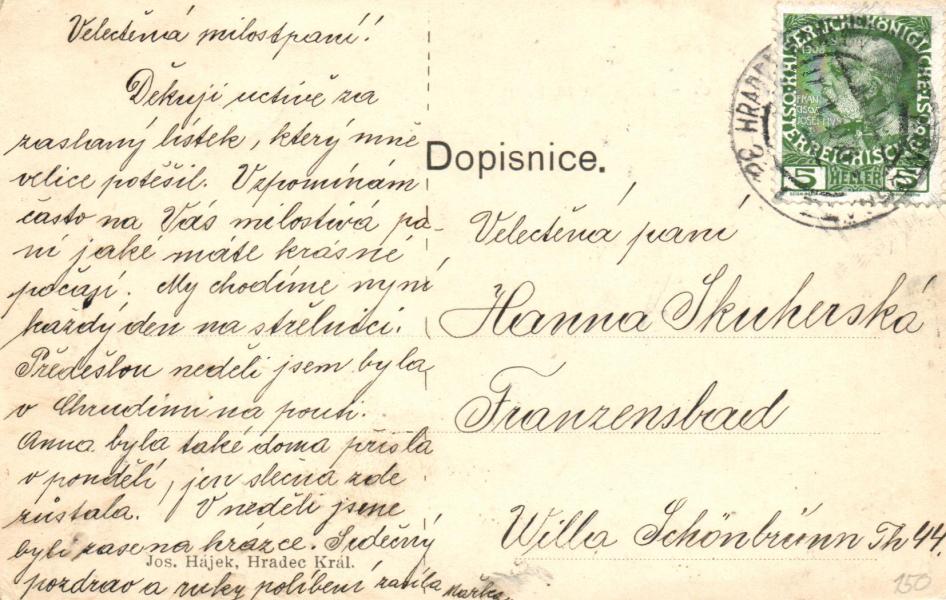 Velectěná milostpaní!
Děkuji uctivě za
zaslaný lístek, který mně
velice potěšil. Vzpomínám
často na Vás milostivá pa-
ní jaké máte krásné
počají. My chodíme nyní
každý den na střelnici.
Předešlou neděli jsem byla
v Chrudimi na pouti.
Anna byla také doma přišla
v pondělí, jen slečna zde
zůstala. V neděli jsme
byli zase na hrázce. Srdečný
pozdrav a ruky políbení zasílá
Jos. Hájek, Hradec Král.
Dopisnice.
Velectěná paní
Hanna Skuherská
Franzensbad
Willa Schönbrünn Th 44.
5 HELLER
150